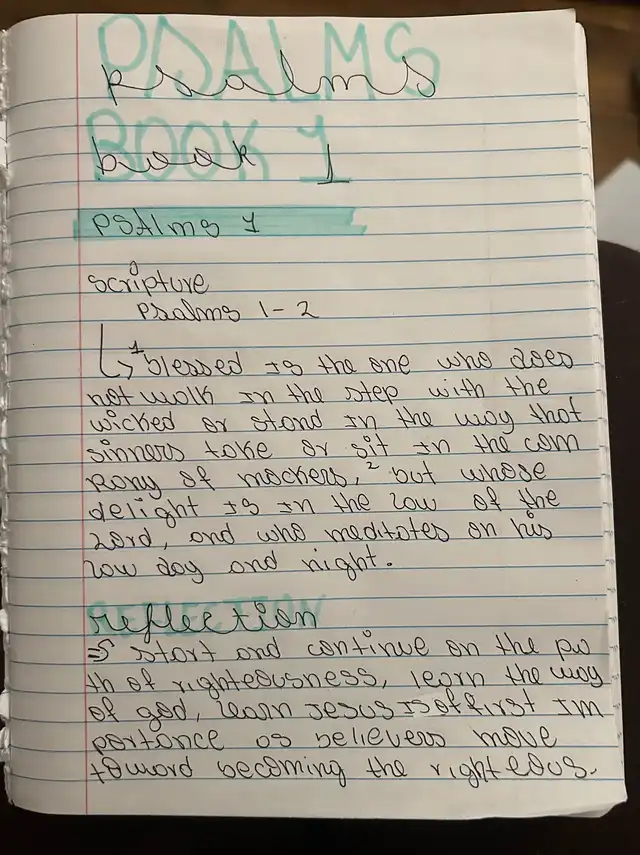 PSALMS
psalms
BOOK 1
book 1
PSAlms 1
scripture
Psalms 1-2
1 blessed is the one who does
not walk in the step with the
wicked or stand in the way that
sinners take or sit in the com
pany of mockers, 2 but whose
delight is in the law of the
Lord, and who meditates on his
law day and night.
REFLECTION
reflection
⇒ start and continue on the pa
th of righteousness, learn the way
of god, learn Jesus is of first im
portance as believers move
toward becoming the righteous.